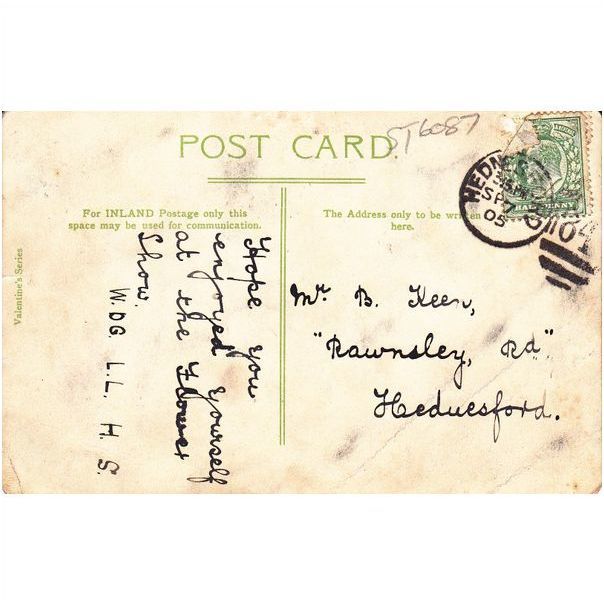 ST6087
POST CARD.
For INLAND Postage only this
space may be used for communication.
The Address only to be written
here.
Valentine's Series
Hope you
enjoyed yourself
at the Flower
Show.
W.DG. L. L. H. S.
Mr B. Keen,
"Rawnsley, Rd"
Hednesford.
SP 7
05
HALFPENNY